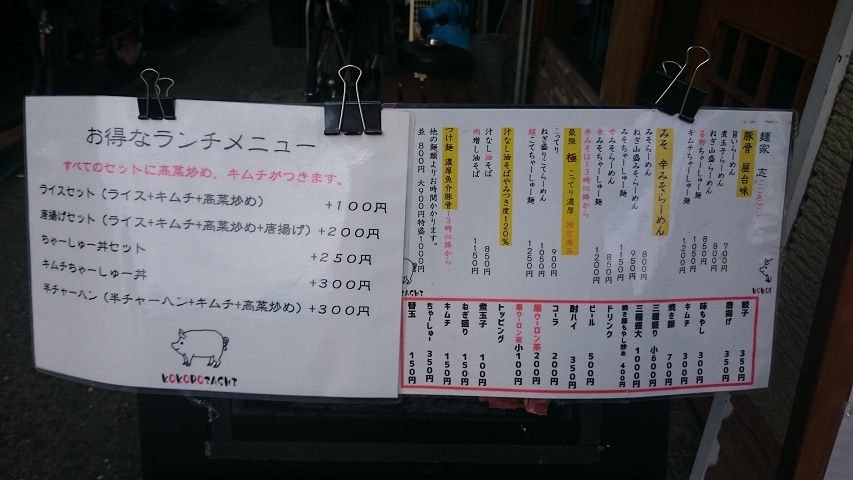 お得なランチメニュー
すべてのセットに高菜炒め、キムチがつきます。
ライスセット(ライス+キムチ+高菜炒め) +100円
唐揚げセット(ライス+キムチ+高菜炒め+唐揚げ) +200円
ちゃーしゅー丼セット +250円
キムチちゃーしゅー丼 +300円
半チャーハン(半チャーハン+キムチ+高菜炒め) +300円
KOKOROZASHI
麺家 志
豚骨 屋台味
旨いらーめん 700円
煮玉子らーめん 800円
ねぎ山盛らーめん 850円
名物ちゃーしゅー麺 1050円
キムチちゃーしゅー麺 1200円
みそ 辛みそらーめん
みそらーめん 800円
ねぎ山盛みそらーめん 950円
みそちゃーしゅー麺 1150円
辛みそらーめん 850円
辛みそちゃーしゅー麺 1200円
辛みそは13時以降から
最強 極 こってり濃厚 限定商品
こってり 900円
ねぎ盛りこてらーめん 1050円
超こてちゃーしゅー麺 1250円
汁なし油そばやみつき度120%
汁なし油そば 850円
肉増し油そば 1150円
つけ麺 濃厚魚介豚骨13時以降から
他の麺類よりお時間かかります。
並 800円 大900円特盛1000円
餃子 350円
唐揚げ 350円
味もやし 300円
キムチ 300円
焼き豚 700円
三種盛り 小600円
三種盛大 1000円
焼き豚もやし炒め 400円
ドリンク
ビール 500円
酎ハイ 350円
コーラ 200円
黒ウーロン茶 200円
黒ウーロン茶 小100円
トッピング
煮玉子 100円
ねぎ盛り 150円
キムチ 150円
ちゃーしゅー 350円
替玉 150円